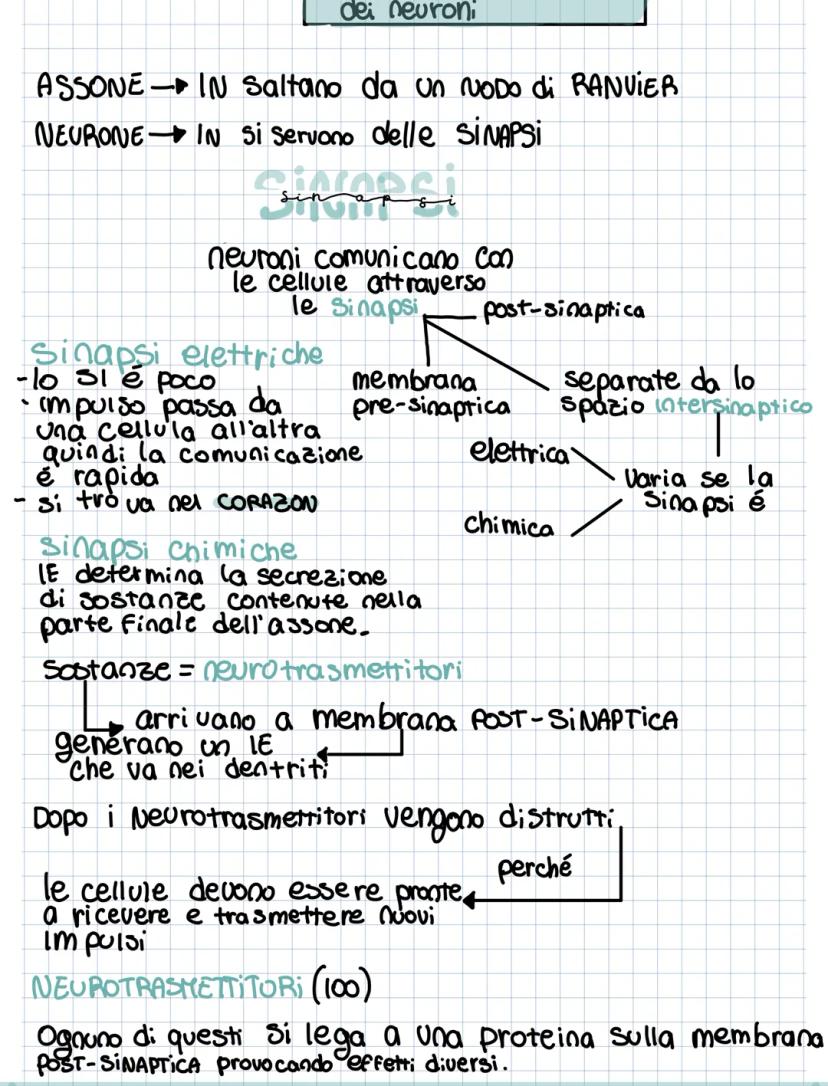 dei neuroni
ASSONE → IN saltano da un NODO di RANVIER
NEURONE → IN si servono delle SINAPSI
sinapsi
sinapsi
neuroni comunicano con
le cellule attraverso
le sinapsi
post-sinaptica
membrana
pre-sinaptica
separate da lo
spazio intersinaptico
varia se la
sinapsi é
elettrica
chimica
sinapsi elettriche
- lo SI é poco
· impulso passa da
una cellula all'altra
quindi la comunicazione
é rapida
- si trova nel CORAZON
sinapsi chimiche
IE determina la secrezione
di sostanze contenute nella
parte finale dell'assone.
Sostanze = neurotrasmettitori
arrivano a membrana POST-SINAPTICA
generano un IE
che va nei dentriti
Dopo i Neurotrasmettitori vengono distrutti
perché
le cellule devono essere pronte
a ricevere e trasmettere nuovi
impulsi
NEUROTRASMETTITORI (100)
Ognuno di questi si lega a una proteina sulla membrana
POST-SINAPTICA provocando effetti diversi.